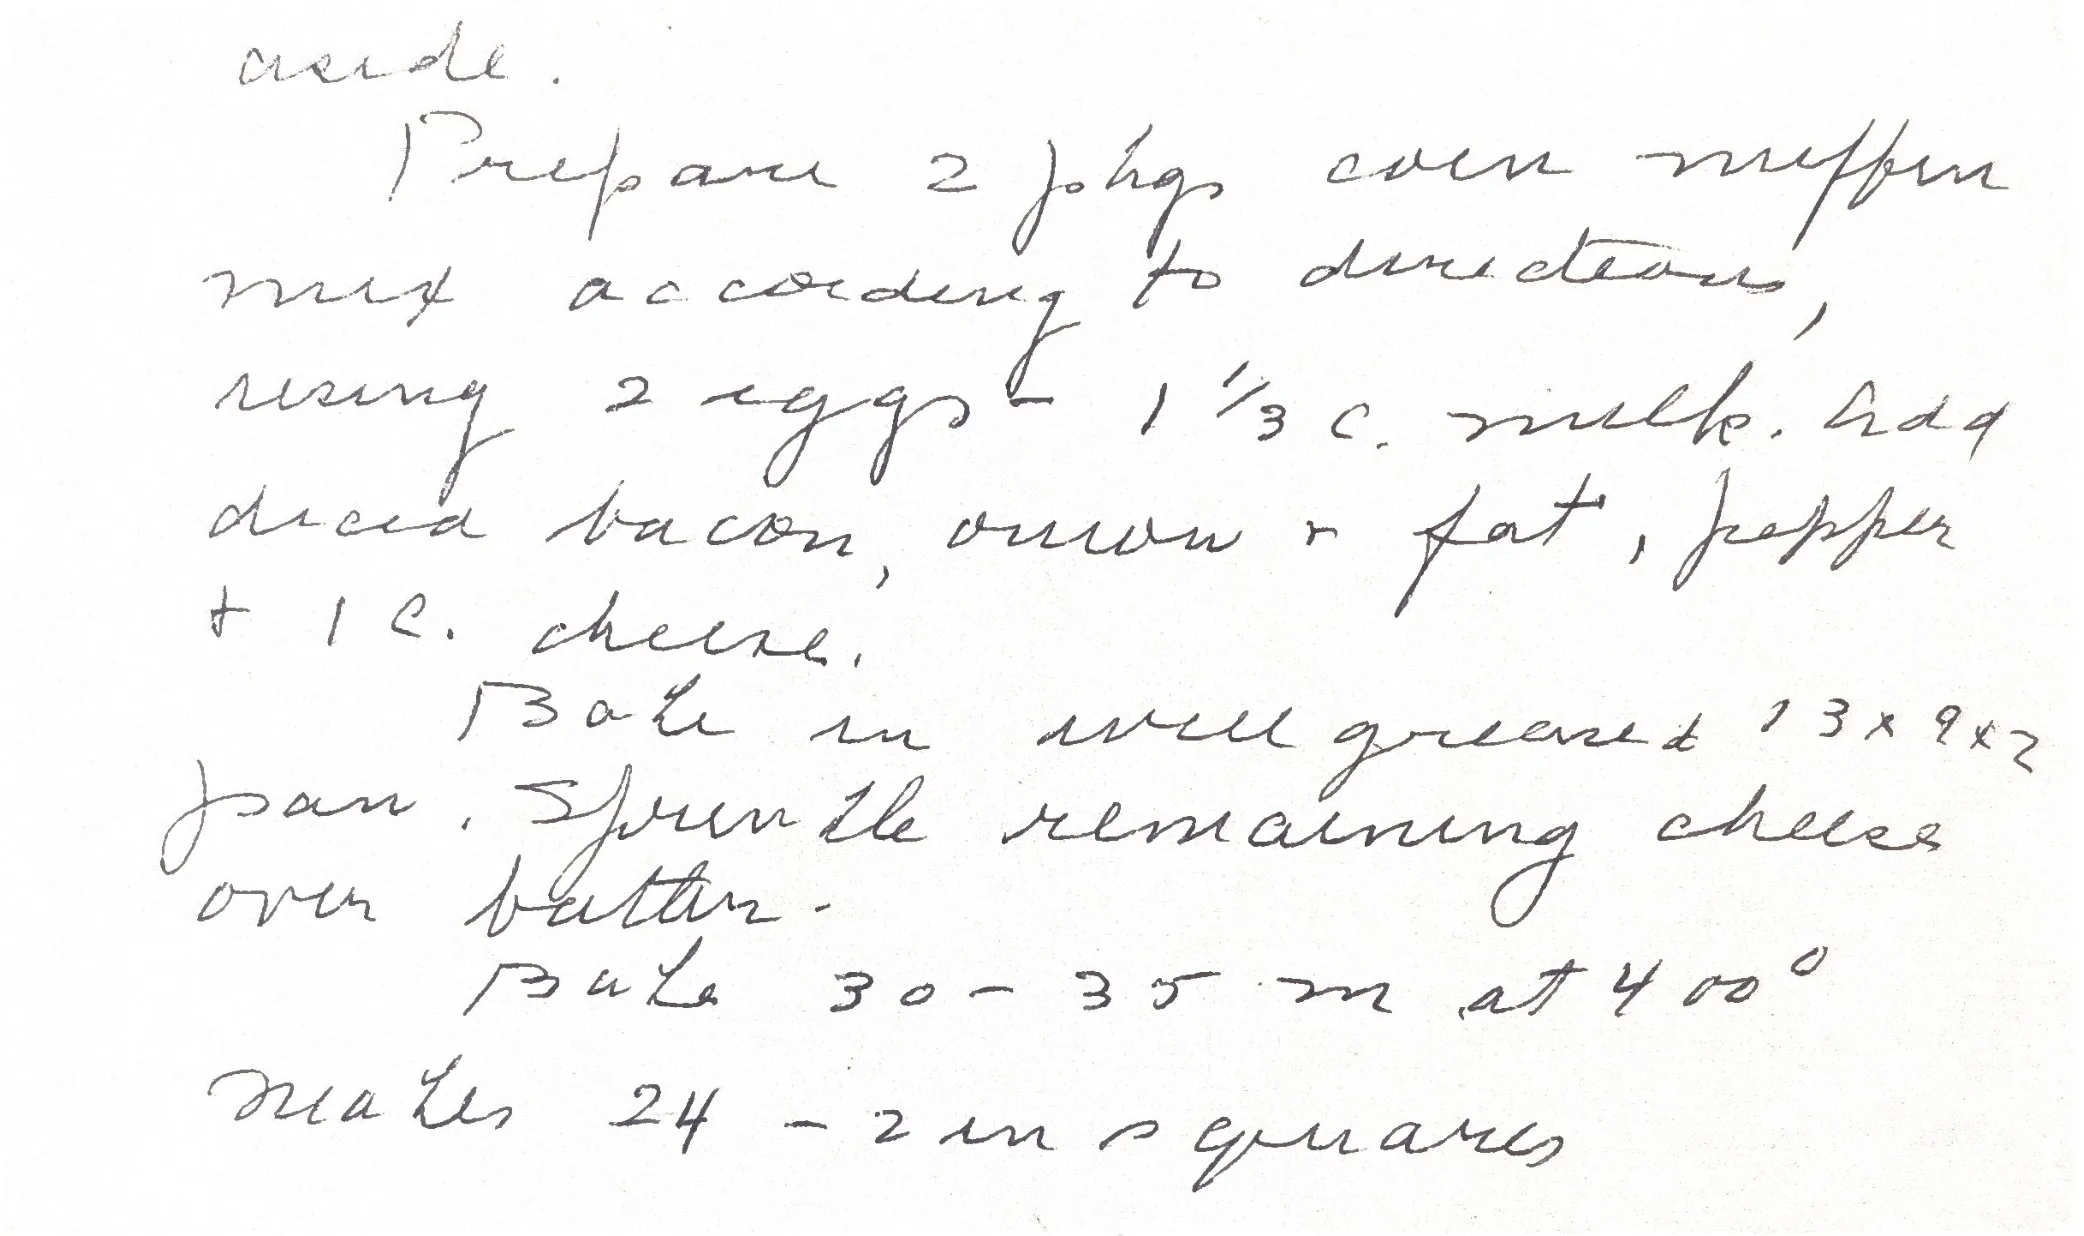 aside.
Prepare 2 pkgs corn muffin
mix according to directions,
using 2 eggs - 1 1/3 c. milk. Add
diced bacon, onion + fat, pepper
+ 1 c. cheese.
Bake in well greased 13x9x2
pan. Sprinkle remaining cheese
over batter.
Bake 30-35 m at 400°
Makes 24 - 2 in squares